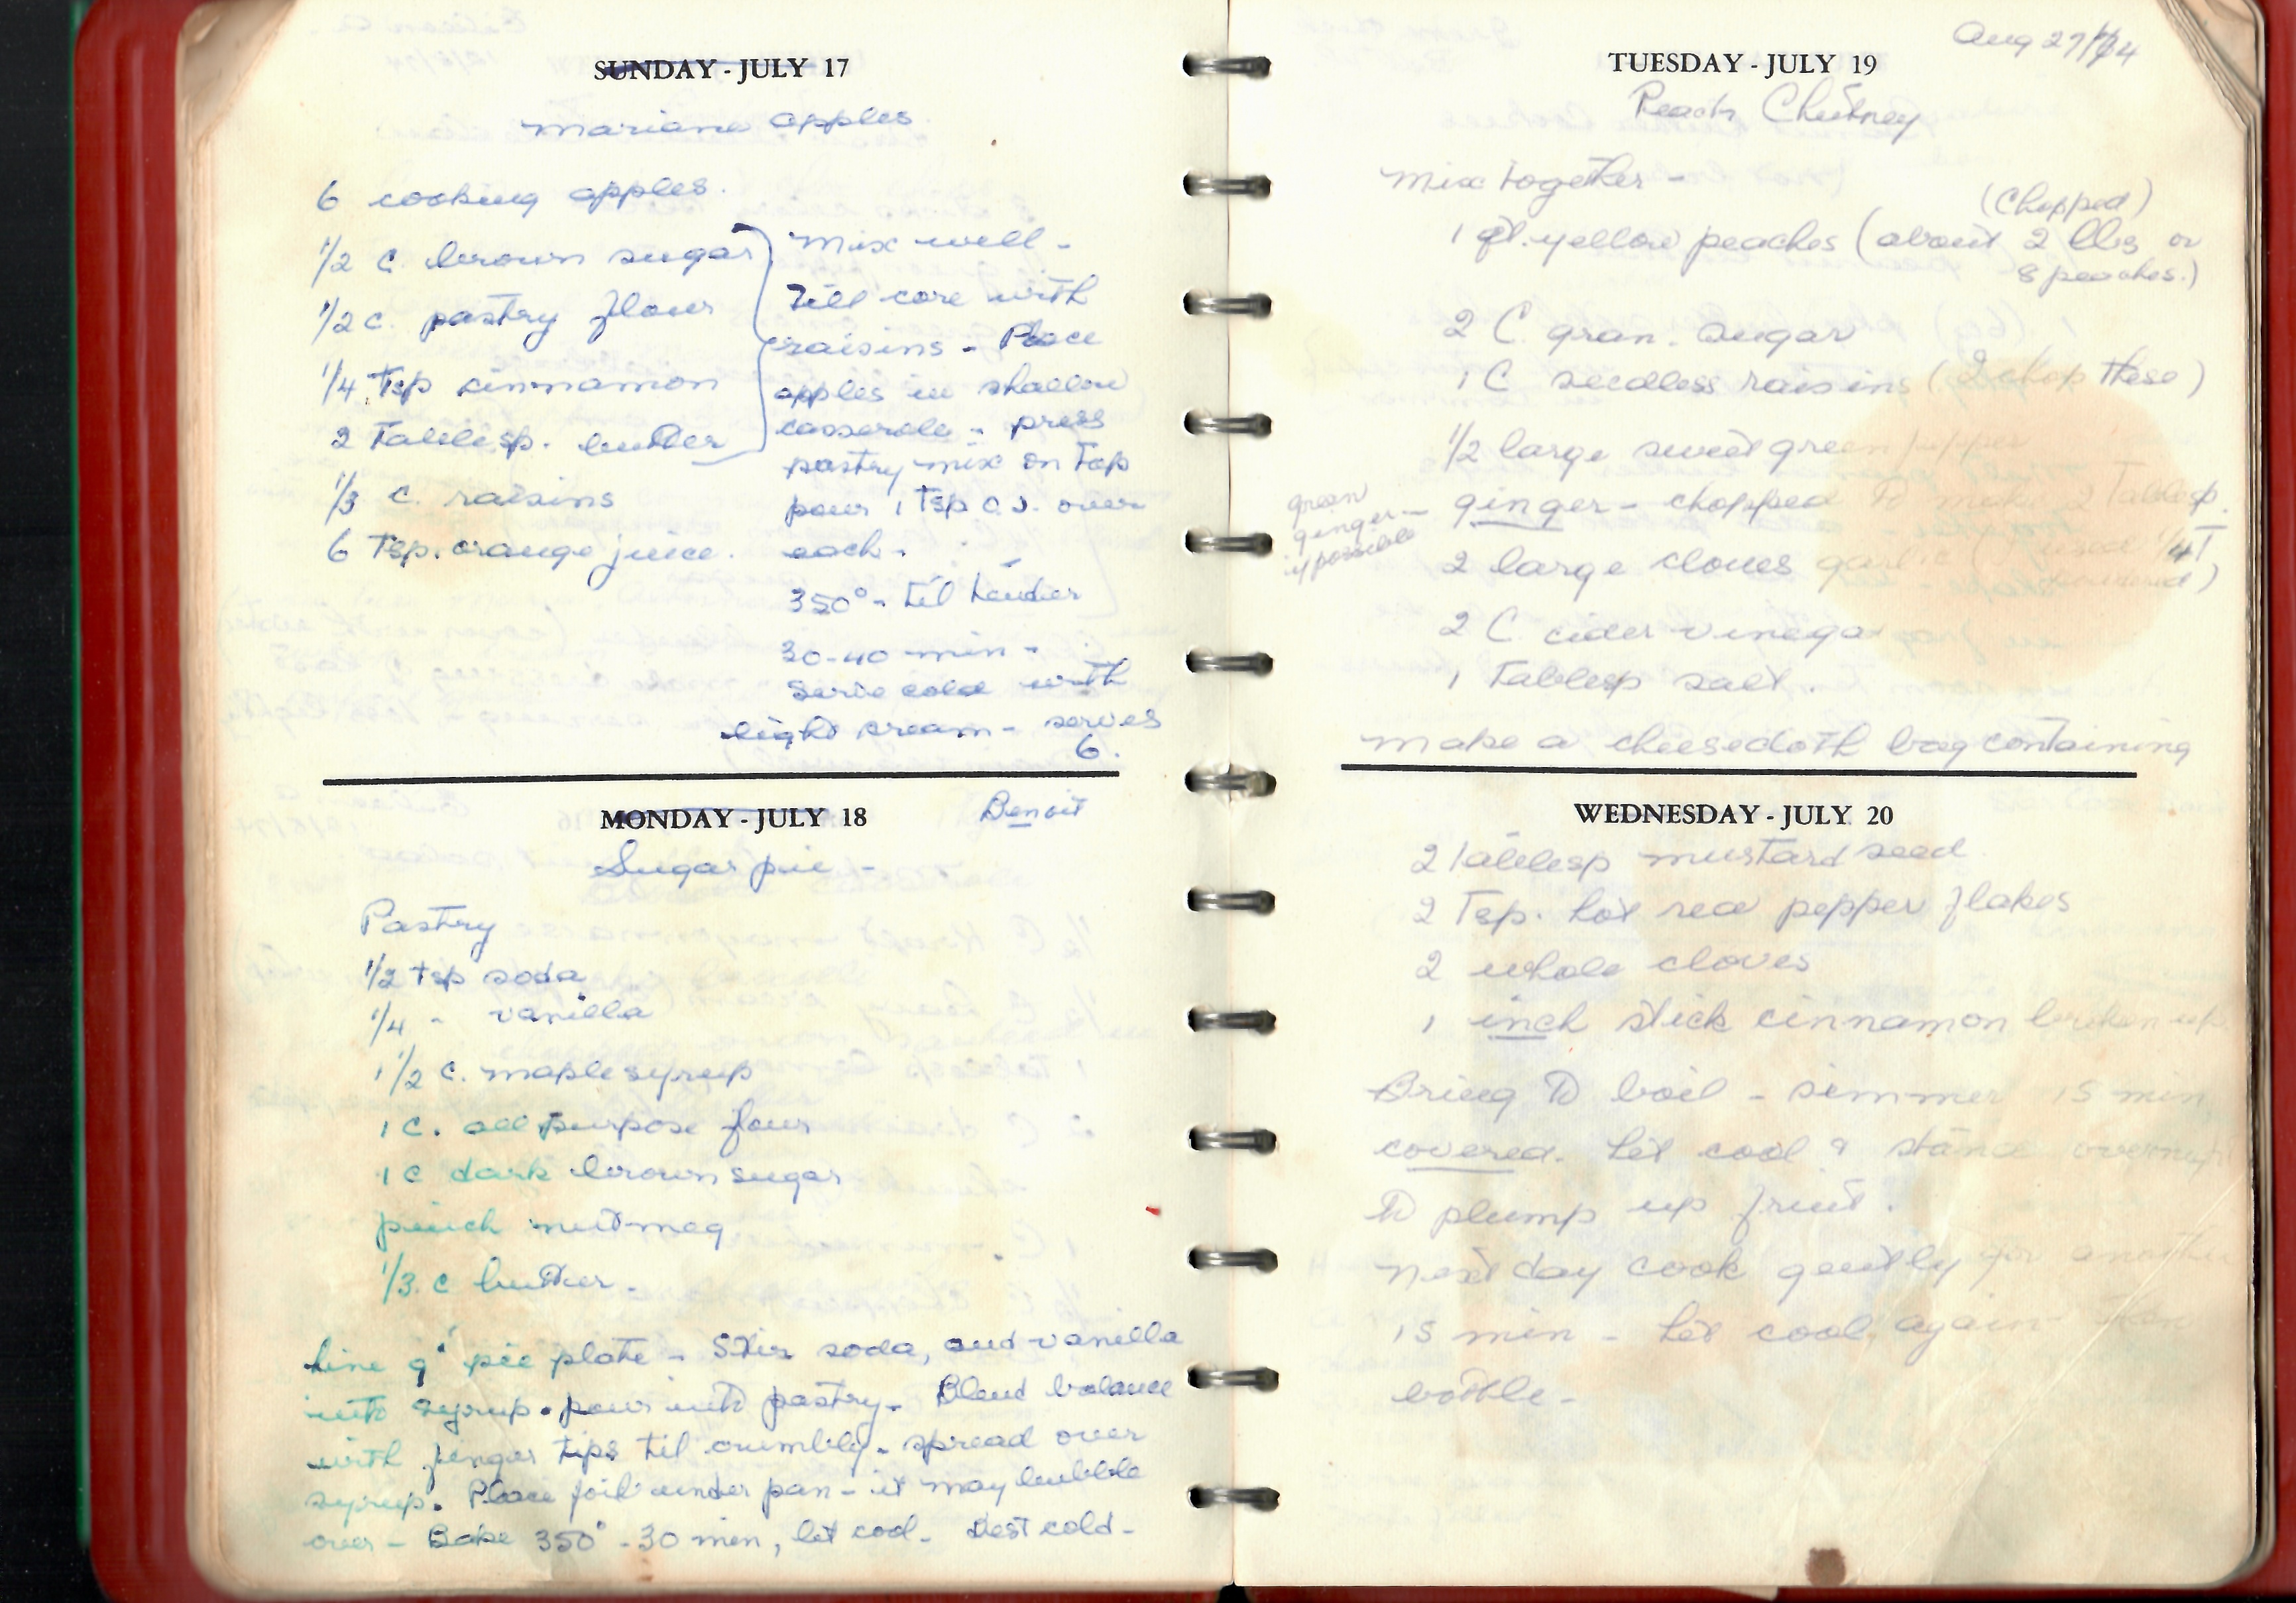 SUNDAY - JULY 17
Mariane apples
6 cooking apples.
1/2 c. brown sugar
1/2 c. pastry flour
1/4 Tsp cinnamon
2 Tablesp. butter
1/3 c. raisins
6 Tsp. orange juice.
Mix well -
Fill core with
raisins - Place
apples in shallow
casserole - press
pastry mix on top
pour 1 Tsp O.J. over
each -
350° - til tender
30-40 min -
Serve cold with
light cream - serves
6.
MONDAY - JULY 18
Benoit
Sugar pie -
Pastry
1/2 tsp soda
1/4 " vanilla
1 1/2 c. maple syrup
1 c. all purpose flour
1 c dark brown sugar
pinch nutmeg
1/3 c butter.
Line 9" pie plate - Stir soda, and vanilla
into syrup. pour into pastry. Blend balance
with finger tips til crumbly - spread over
syrup. Place foil under pan - it may bubble
over - Bake 350° - 30 min, let cool - Best cold -
Aug 27/74
TUESDAY - JULY 19
Peach Chutney
Mix together -
(Chopped)
1 qt. yellow peaches (about 2 lbs or
8 peaches.)
2 C. gran. sugar
1 C seedless raisins (I chop these)
1/2 large sweet green pepper
green
ginger -
if possible
ginger - chopped to make 2 Tablesp.
2 large cloves garlic (I used 1/4 T
powdered)
2 C cider vinegar
1 Tablesp salt.
Make a cheesecloth bag containing
WEDNESDAY - JULY 20
2 Tablesp mustard seed
2 Tsp. hot red pepper flakes
2 whole cloves
1 inch stick cinnamon broken up
Bring to boil - simmer 15 min
covered. Let cool & stand overnight
to plump up fruit.
Next day cook gently for another
15 min - Let cool again then
bottle -